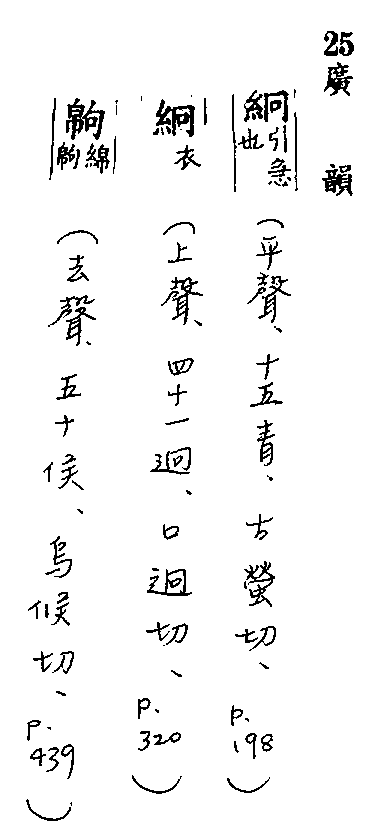 25 廣韻
絅 引急也 (平聲、十五青、古螢切、p.198)
絅 衣 (上聲、四十一迥、口迥切、p.320)
綿 (去聲、五十侯、烏候切、p.439)